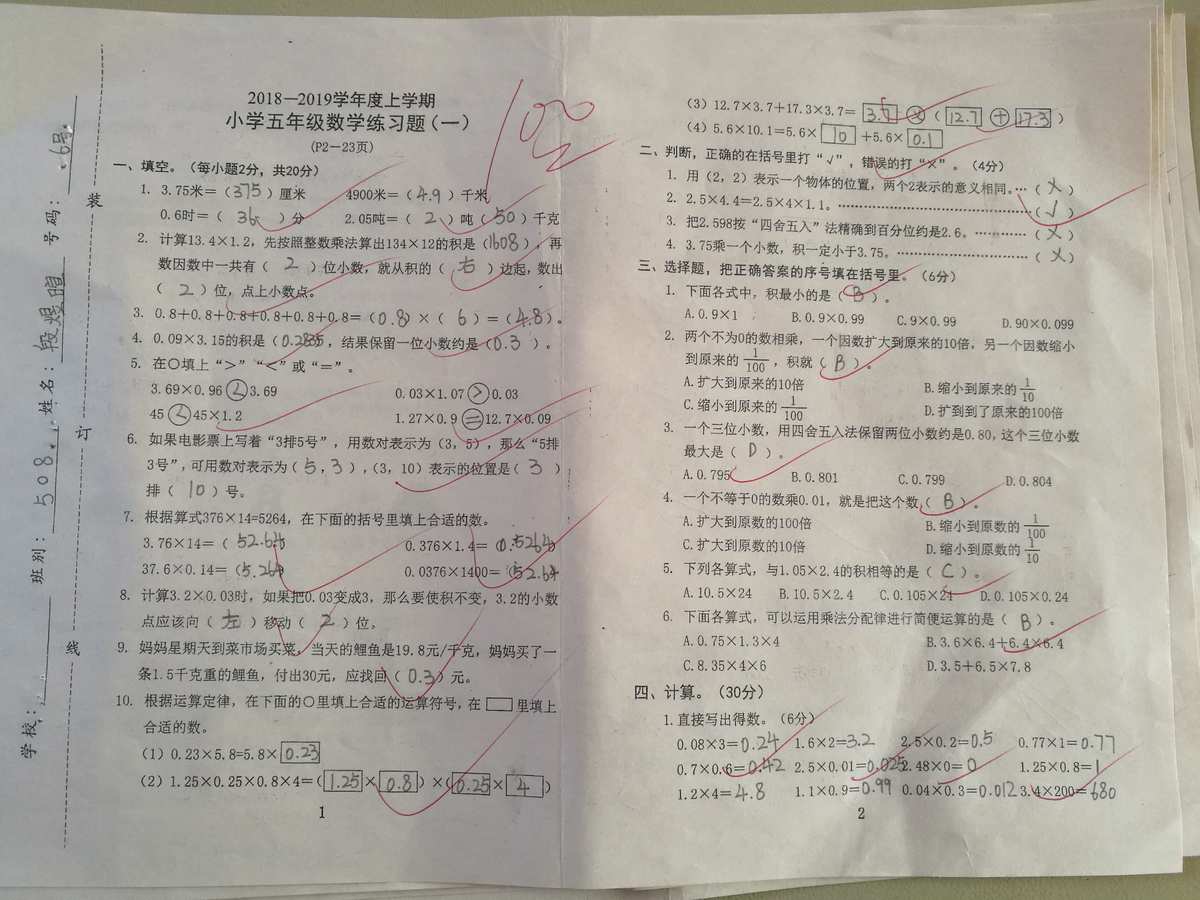 学校：
班别：508.
姓名：段煜瞳
号码：.6号
装
订
线
100
2018—2019学年度上学期
小学五年级数学练习题（一）
（P2—23页）
一、填空。（每小题2分，共20分）
1. 3.75米＝（375）厘米 4900米＝（4.9）千米
0.6时＝（36）分 2.05吨＝（2）吨（50）千克
2. 计算13.4×1.2，先按照整数乘法算出134×12的积是（1608），再
数因数中一共有（2）位小数，就从积的（右）边起，数出
（2）位，点上小数点。
3. 0.8+0.8+0.8+0.8+0.8+0.8＝（0.8）×（6）＝（4.8）。
4. 0.09×3.15的积是（0.2835，结果保留一位小数约是（0.3）。
5. 在○填上“>”“<”或“＝”。
3.69×0.96<3.69 0.03×1.07>0.03
45<45×1.2 1.27×0.9=12.7×0.09
6. 如果电影票上写着“3排5号”，用数对表示为（3，5），那么“5排
3号”，可用数对表示为（5，3），（3，10）表示的位置是（3）
排（10）号。
7. 根据算式376×14=5264，在下面的括号里填上合适的数。
3.76×14＝（52.64） 0.376×1.4＝（0.5264）
37.6×0.14＝（5.264） 0.0376×1400＝（52.64
8. 计算3.2×0.03时，如果把0.03变成3，那么要使积不变，3.2的小数
点应该向（左）移动（2）位。
9. 妈妈星期天到菜市场买菜，当天的鲤鱼是19.8元/千克，妈妈买了一
条1.5千克重的鲤鱼，付出30元，应找回（0.3）元。
10. 根据运算定律，在下面的○里填上合适的运算符号，在□里填上
合适的数。
（1）0.23×5.8=5.8×0.23
（2）1.25×0.25×0.8×4＝（1.25×0.8）×（0.25×4）
1
（3）12.7×3.7＋17.3×3.7＝3.7×（12.7+17.3）
（4）5.6×10.1＝5.6×10＋5.6×0.1
二、判断，正确的在括号里打“√”，错误的打“×”。（4分）
1. 用（2，2）表示一个物体的位置，两个2表示的意义相同。…（×）
2. 2.5×4.4＝2.5×4×1.1。……………………………（√）
3. 把2.598按“四舍五入”法精确到百分位约是2.6。…………（×）
4. 3.75乘一个小数，积一定小于3.75。……………………（×）
三、选择题，把正确答案的序号填在括号里。（6分）
1. 下面各式中，积最小的是（B）。
A.0.9×1 B.0.9×0.99 C.9×0.99 D.90×0.099
2. 两个不为0的数相乘，一个因数扩大到原来的10倍，另一个因数缩小
到原来的1/100，积就（B）。
A.扩大到原来的10倍 B.缩小到原来的1/10
C.缩小到原来的1/100 D.扩到到了原来的100倍
3. 一个三位小数，用四舍五入法保留两位小数约是0.80，这个三位小数
最大是（D）。
A.0.795 B.0.801 C.0.799 D.0.804
4. 一个不等于0的数乘0.01，就是把这个数（B）。
A.扩大到原数的100倍 B.缩小到原数的1/100
C.扩大到原数的10倍 D.缩小到原数的1/10
5. 下列各算式，与1.05×2.4的积相等的是（C）。
A.10.5×24 B.10.5×2.4 C.0.105×24 D.0.105×0.24
6. 下面各算式，可以运用乘法分配律进行简便运算的是（B）。
A.0.75×1.3×4 B.3.6×6.4＋6.4×6.4
C.8.35×4×6 D.3.5＋6.5×7.8
四、计算。（30分）
1.直接写出得数。（6分）
0.08×3＝0.24 1.6×2＝3.2 2.5×0.2＝0.5 0.77×1＝0.77
0.7×0.6＝0.42 2.5×0.01＝0.025 2.48×0＝0 1.25×0.8＝1
1.2×4＝4.8 1.1×0.9＝0.99 0.04×0.3＝0.012 3.4×200＝680
2